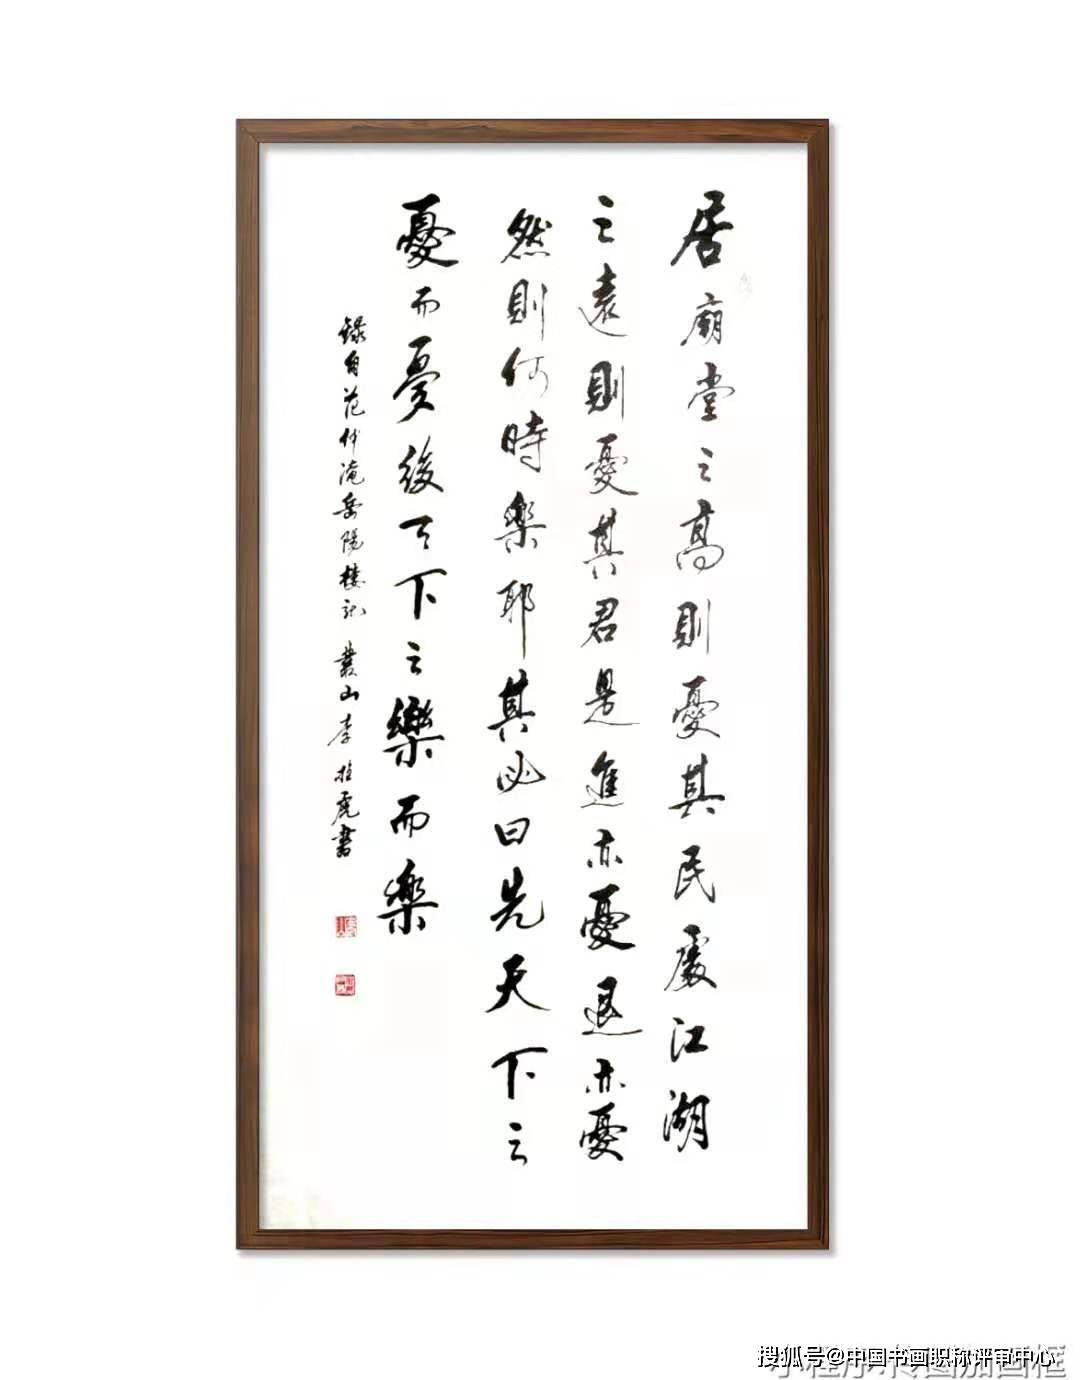 居廟堂之高則憂其民處江湖
之遠則憂其君是進亦憂退亦憂
然則何時樂耶其必曰先天下之
憂而憂後天下之樂而樂
錄自范仲淹岳陽樓記 叢山李桂虎書
搜狐号@中国书画职称评审中心